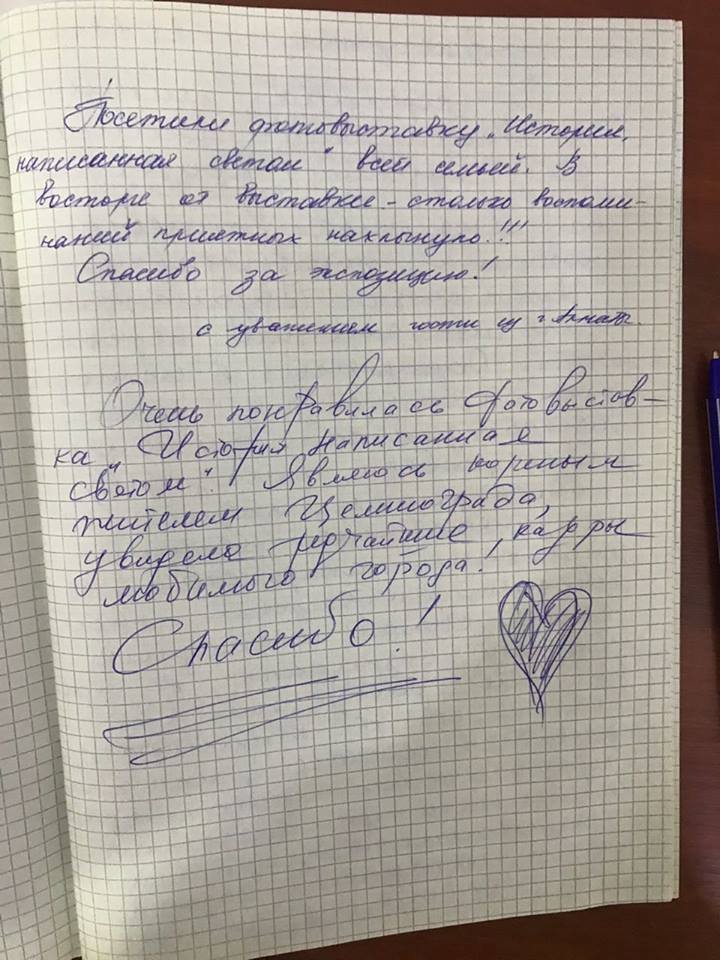 Посетили фотовыставку „История,
написанная светом" всей семьей. В
восторге от выставки - столько воспоми-
наний приятных нахлынуло!!!
Спасибо за экспозицию!
с уважением гости из г. Алматы.
Очень понравилась Фотовыстов-
ка „История Написанная
светом". Являюсь корным
жителем Целинограда,
увидела редчайшие кадры
любимого города!
Спасибо!